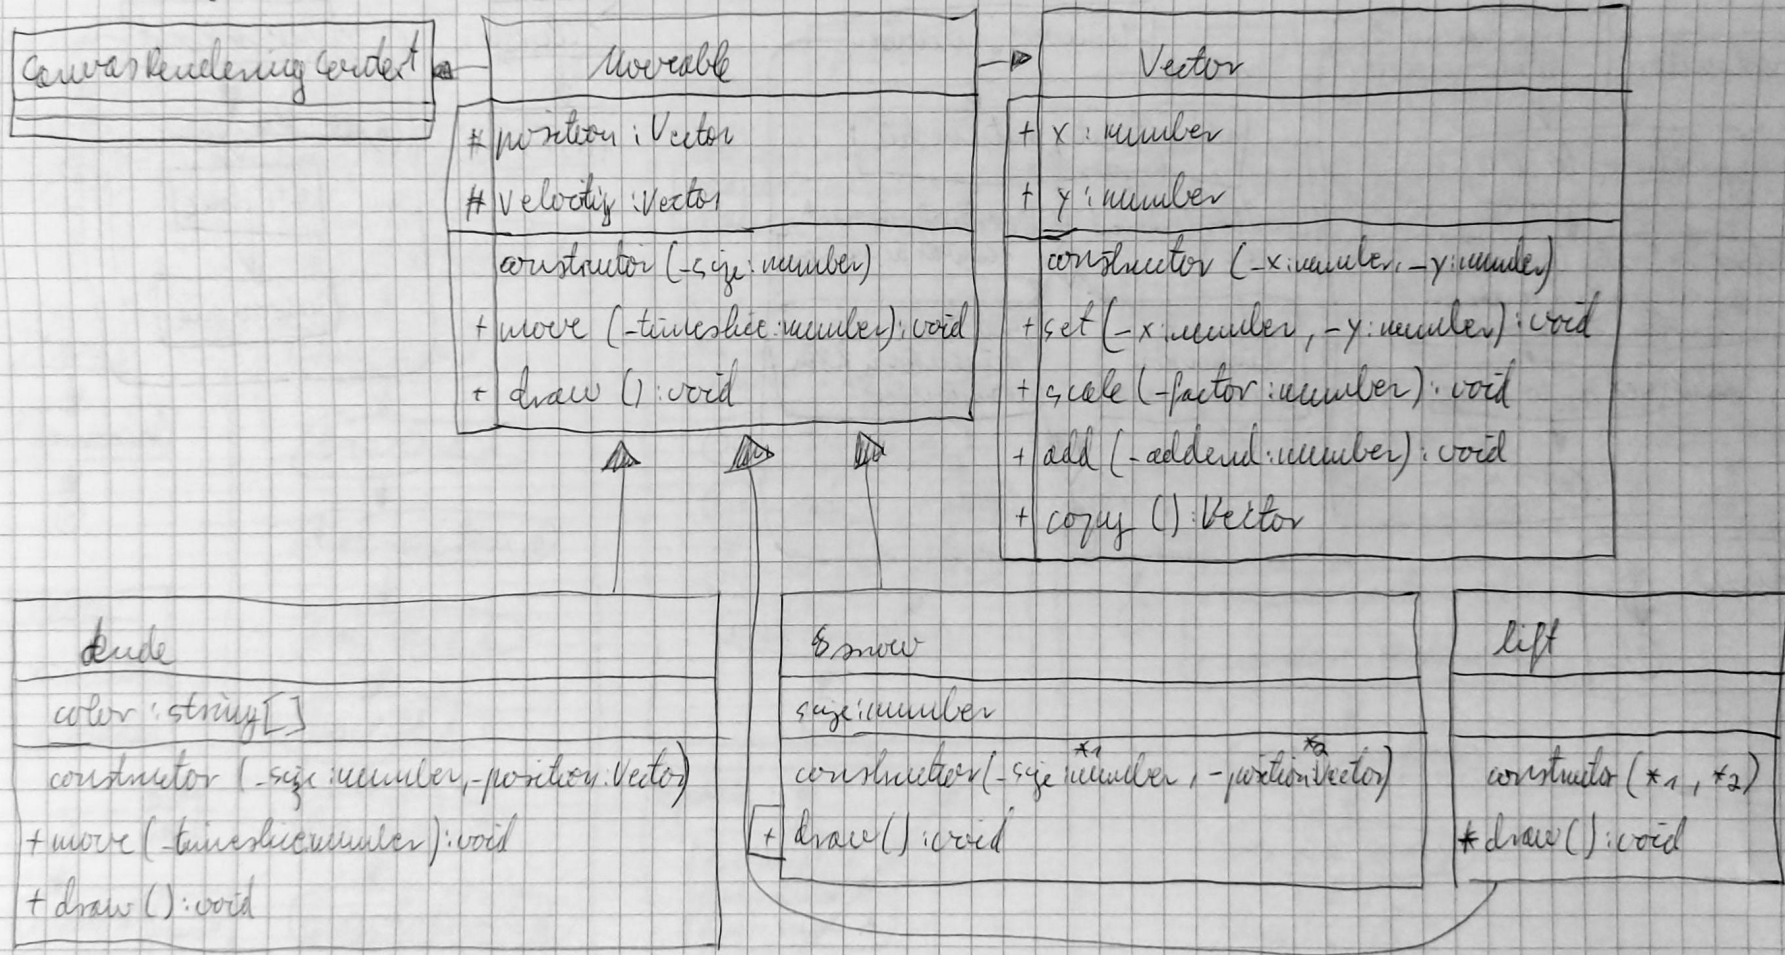 CanvasRenderingContext
Moveable
# position : Vector
# velocity : Vector
constructor (_size : number)
+ move (_timeslice : number) : void
+ draw () : void
Vector
+ x : number
+ y : number
constructor (_x : number, _y : number)
+ set (_x : number, _y : number) : void
+ scale (_factor : number) : void
+ add (_addend : number) : void
+ copy () : Vector
dude
color : string[]
constructor (_size : number, _position : Vector)
+ move (_timeslice : number) : void
+ draw () : void
Snow
size : number
*1 *2
constructor (_size : number, _position : Vector)
+ draw () : void
lift
constructor (*1, *2)
* draw () : void